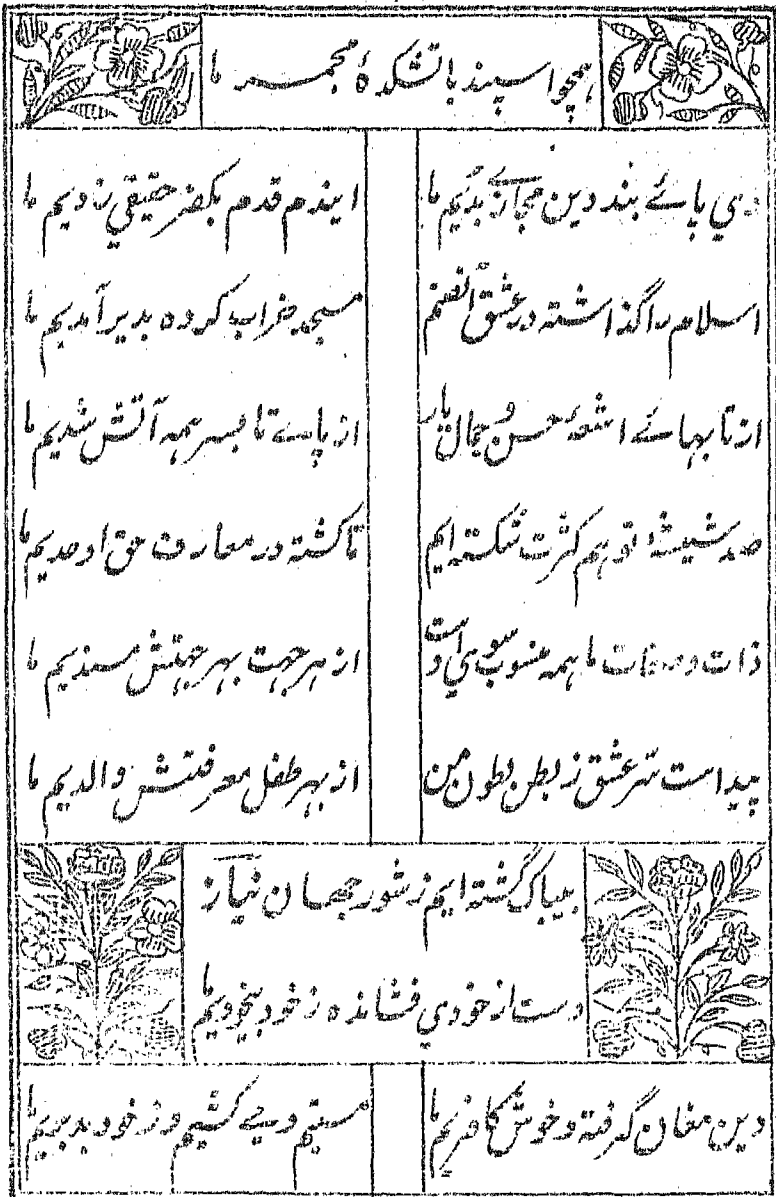 ہمچو اسپند باتشکدۂ مجمر ما
دی پائے بند دین مجازے بدیم ما اینذم قدم بکفر حقیقی زدیم ما
اسلام را گذاشته در عشق آن صنم مسجد خراب کرده بدیر آمدیم ما
از تابہائے اشعۂ حسن و جمال یار از پاے تا بسر ہمہ آتش شدیم ما
صد شیشۂ توہم کثرت شکستہ ایم تا کشتہ در معارف حق اوحدیم ما
ذات و صفات ما ہمہ منسوب سوی اوست از ہر جہت بہر جہتش مسندیم ما
پیداست سر عشق ز بطن بطون من از بہر طفل معرفتش والدیم ما
بیباک گشتہ ایم ز شور جہان نیاز
دست از خودی فشاندہ ز خود بیخودیم ما
دین مغان گرفتہ و خوش کافریم ما مستیم و مے کشیم و ز خود بدبریم ما